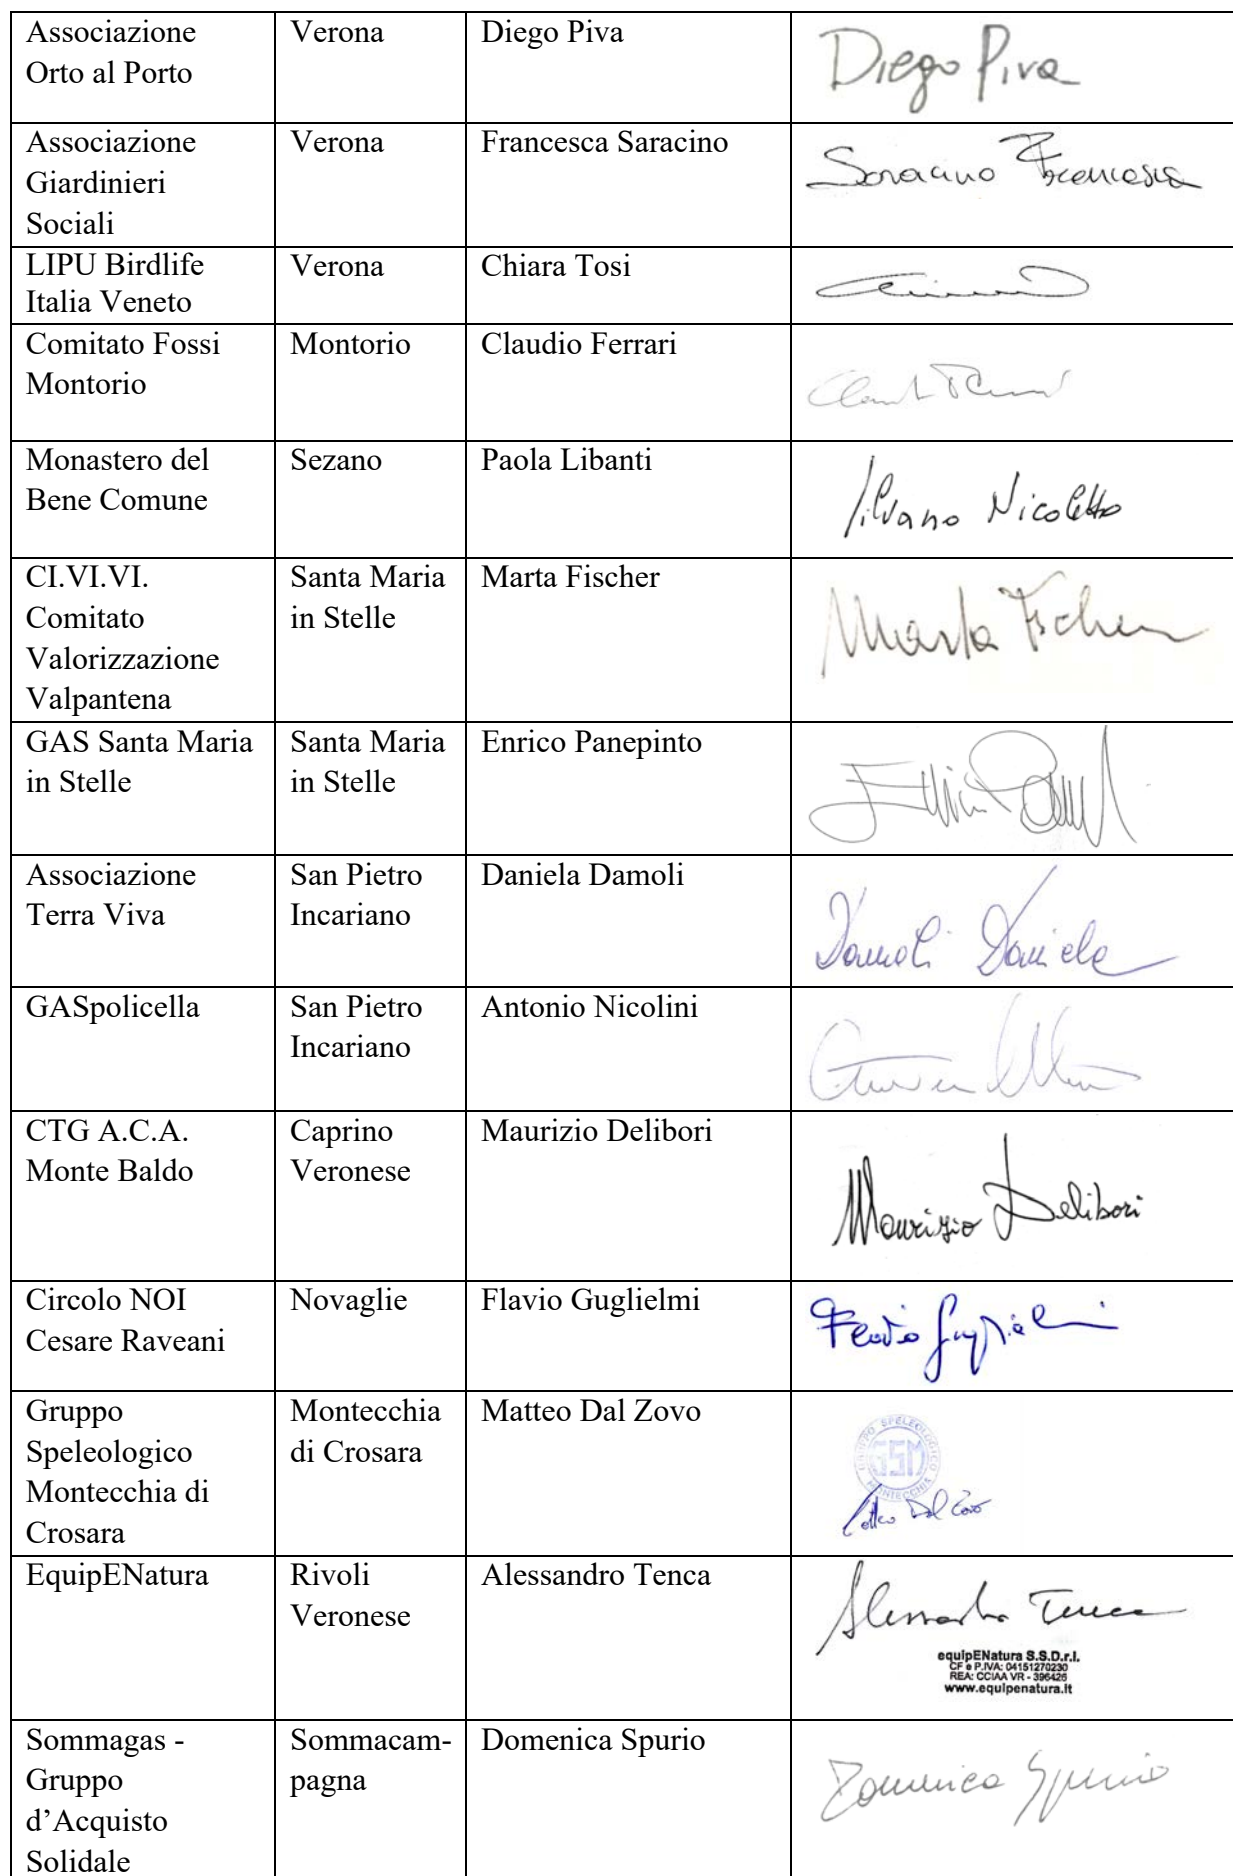 Associazione
Orto al Porto
Verona
Diego Piva
Diego Piva
Associazione
Giardinieri
Sociali
Verona
Francesca Saracino
Saracino Francesca
LIPU Birdlife
Italia Veneto
Verona
Chiara Tosi
Comitato Fossi
Montorio
Montorio
Claudio Ferrari
Monastero del
Bene Comune
Sezano
Paola Libanti
Silvano Nicoletto
CI.VI.VI.
Comitato
Valorizzazione
Valpantena
Santa Maria
in Stelle
Marta Fischer
Marta Fischer
GAS Santa Maria
in Stelle
Santa Maria
in Stelle
Enrico Panepinto
Associazione
Terra Viva
San Pietro
Incariano
Daniela Damoli
Damoli Daniela
GASpolicella
San Pietro
Incariano
Antonio Nicolini
CTG A.C.A.
Monte Baldo
Caprino
Veronese
Maurizio Delibori
Maurizio Delibori
Circolo NOI
Cesare Raveani
Novaglie
Flavio Guglielmi
Flavio Guglielmi
Gruppo
Speleologico
Montecchia di
Crosara
Montecchia
di Crosara
Matteo Dal Zovo
GRUPPO SPELEOLOGICO
GSM
MONTECCHIA
Matteo Dal Zovo
EquipENatura
Rivoli
Veronese
Alessandro Tenca
Alessandro Tenca
equipENatura S.S.D.r.l.
CF e P.IVA: 04151270230
REA: CCIAA VR - 396425
www.equipenatura.it
Sommagas -
Gruppo
d’Acquisto
Solidale
Sommacam-
pagna
Domenica Spurio
Domenica Spurio